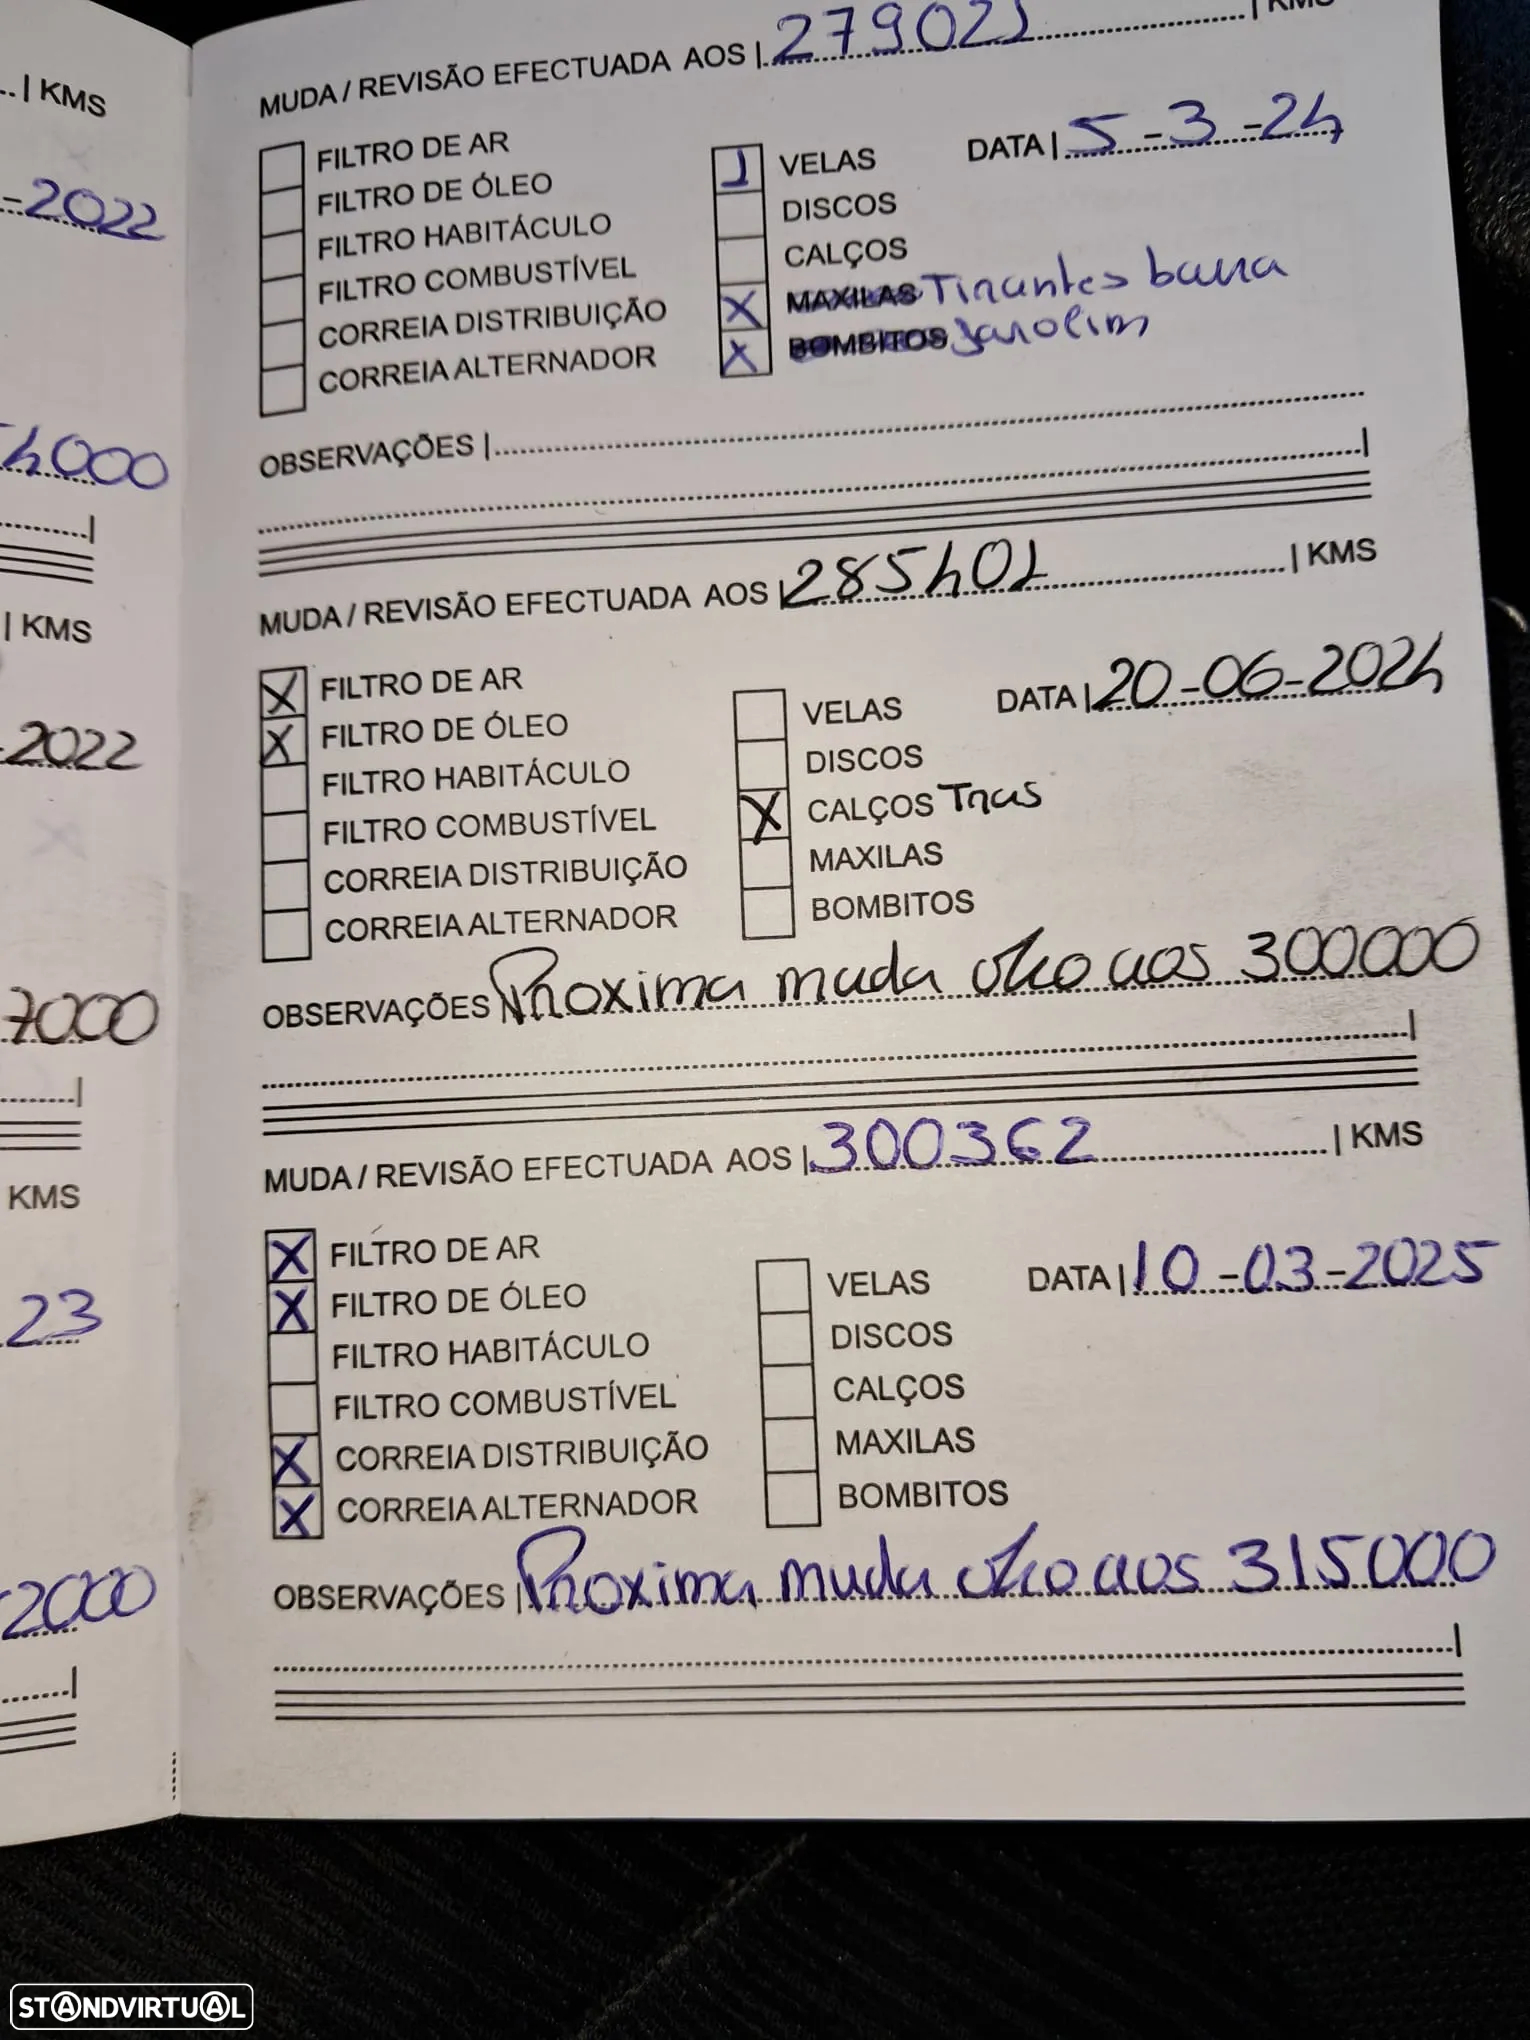 ..| KMS
-2022
4000
| KMS
-2022
7000
KMS
23
2000
MUDA / REVISÃO EFECTUADA AOS | 279021 | KMS
FILTRO DE AR
FILTRO DE ÓLEO
FILTRO HABITÁCULO
FILTRO COMBUSTÍVEL
CORREIA DISTRIBUIÇÃO
CORREIA ALTERNADOR
1 VELAS
DISCOS
CALÇOS
X MAXILAS Tirantes barra
X BOMBITOS Jarolim
DATA | 5-3-24
OBSERVAÇÕES |
MUDA / REVISÃO EFECTUADA AOS | 285401 | KMS
X FILTRO DE AR
X FILTRO DE ÓLEO
FILTRO HABITÁCULO
FILTRO COMBUSTÍVEL
CORREIA DISTRIBUIÇÃO
CORREIA ALTERNADOR
VELAS
DISCOS
X CALÇOS Tras
MAXILAS
BOMBITOS
DATA | 20-06-2024
OBSERVAÇÕES | Proxima muda oleo aos 300000
MUDA / REVISÃO EFECTUADA AOS | 300362 | KMS
X FILTRO DE AR
X FILTRO DE ÓLEO
FILTRO HABITÁCULO
FILTRO COMBUSTÍVEL
X CORREIA DISTRIBUIÇÃO
X CORREIA ALTERNADOR
VELAS
DISCOS
CALÇOS
MAXILAS
BOMBITOS
DATA | 10-03-2025
OBSERVAÇÕES | Proxima muda oleo aos 315000
STANDVIRTUAL